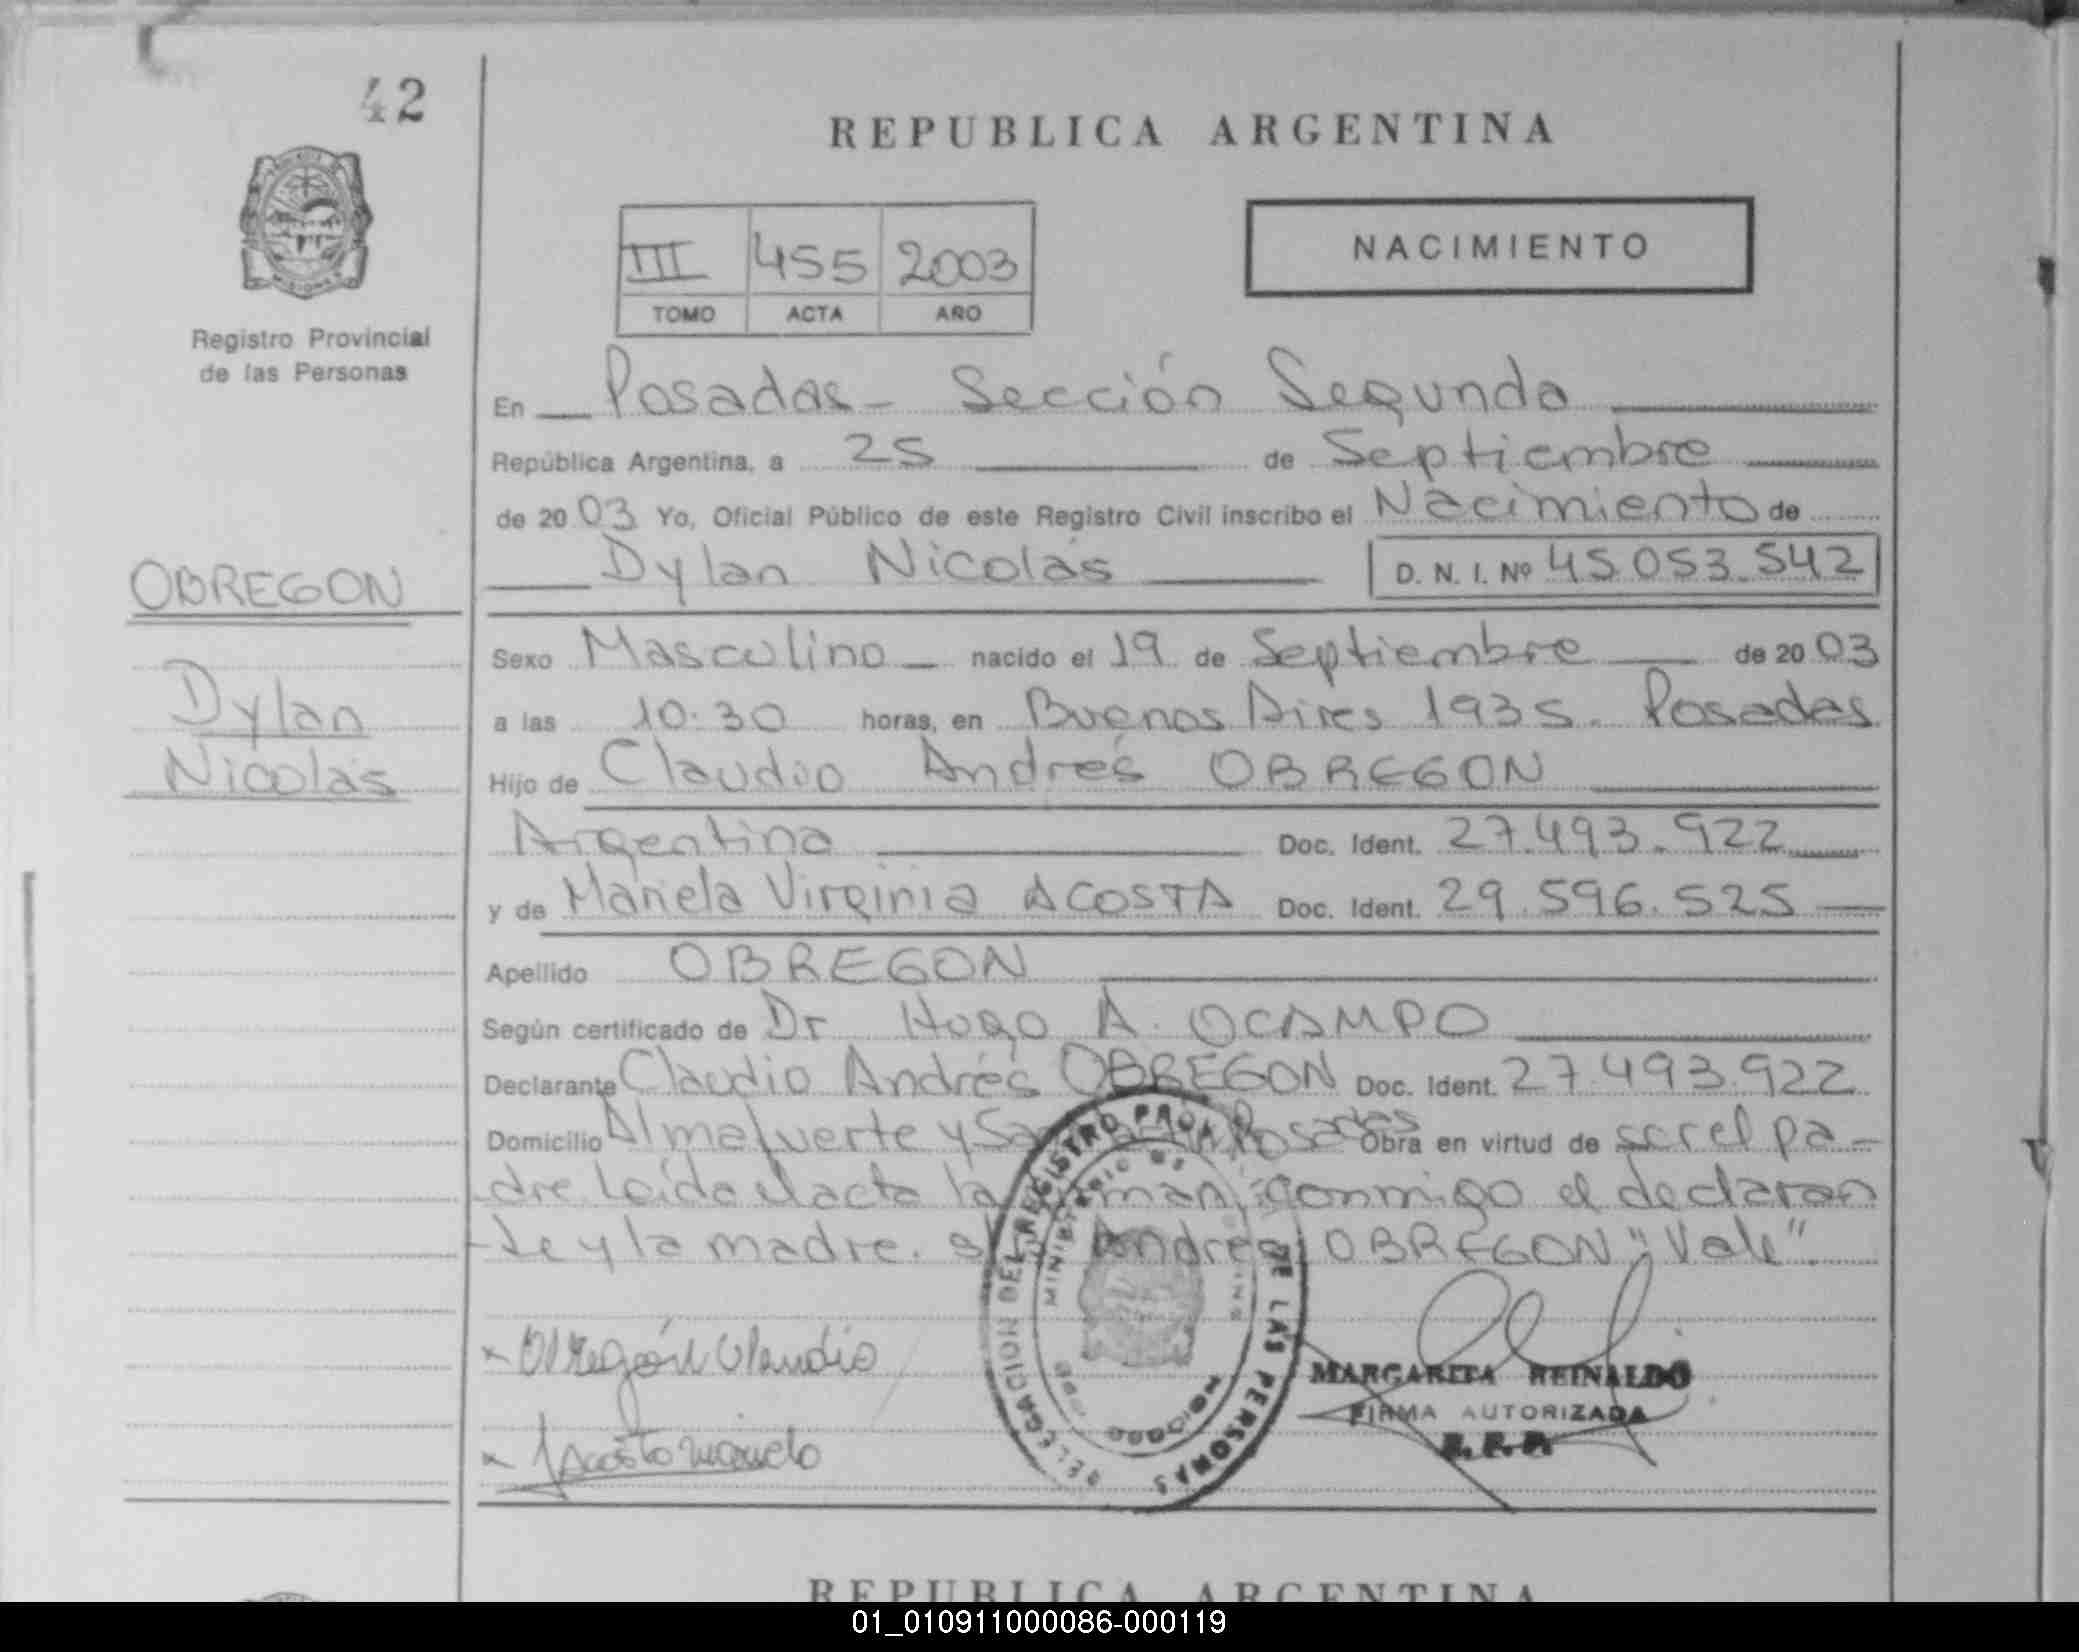 42
REPUBLICA ARGENTINA
III 455 2003
TOMO ACTA AÑO
NACIMIENTO
Registro Provincial
de las Personas
En Posadas - Sección Segunda
República Argentina, a 25 de Septiembre
de 2003 Yo, Oficial Público de este Registro Civil inscribo el Nacimiento de
Dylan Nicolás D. N. I. Nº 45.053.542
OBREGON
Dylan
Nicolás
Sexo Masculino nacido el 19 de Septiembre de 2003
a las 10.30 horas, en Buenos Aires 1935. Posadas
Hijo de Claudio Andrés OBREGON
Argentina Doc. Ident. 27.493.922
y de Mariela Virginia ACOSTA Doc. Ident. 29.596.525
Apellido OBREGON
Según certificado de Dr Hugo A. OCAMPO
Declarante Claudio Andrés OBREGON Doc. Ident. 27.493.922
Domicilio Almafuerte y Posadas Obra en virtud de ser el pa-
dre Leída el acta la conmigo el declaran
-te y la madre. Andrés OBREGON "Vale".
x Obregón Claudio
x Acosta Mariela
DELEGACION DEL REGISTRO PROV. DE LAS PERSONAS
MINISTERIO DE
MARGARITA REINALDO
FIRMA AUTORIZADA
R. P. P.
REPUBLICA ARGENTINA
01_010911000086-000119